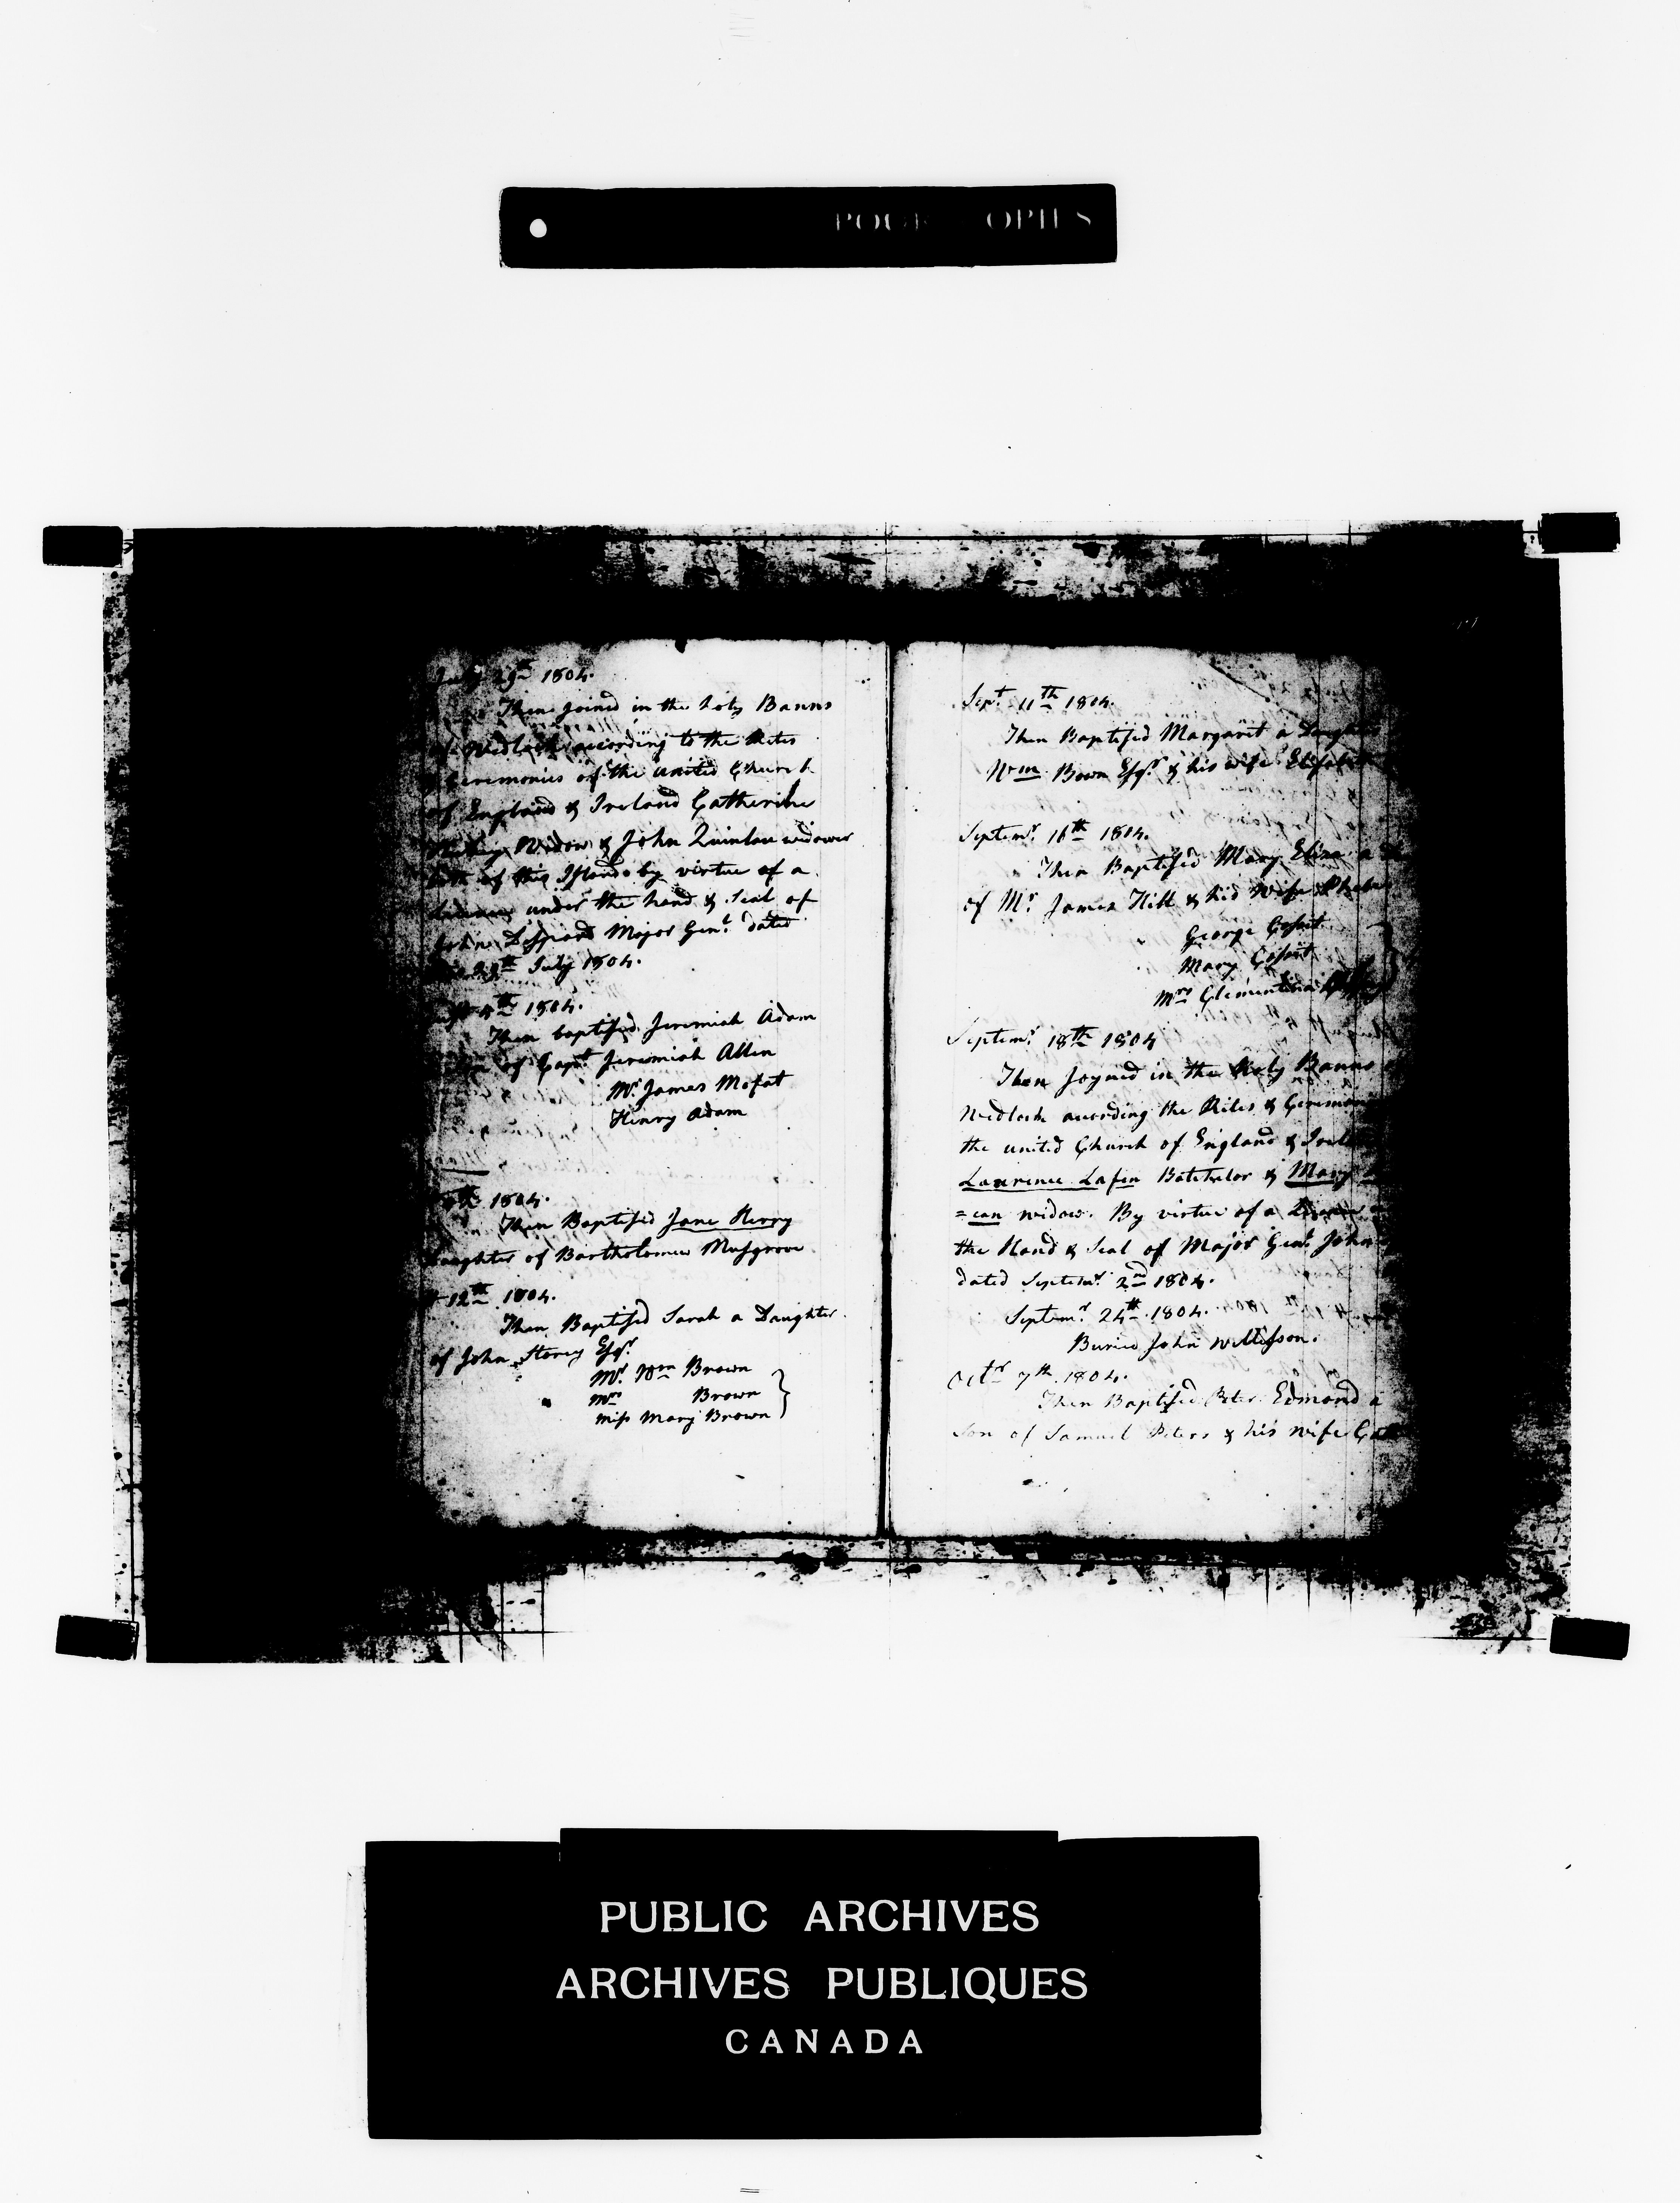 POOR COPIES
July 29th 1804.
Then joined in the holy Banns
of Wedlock according to the Rites
& Ceremonies of the united Church
of England & Ireland Catherine
Widow & John Quinlan widower
both of this Island by virtue of a
under the hand & Seal of
John Despard Major Genl. dated
July 1804.
5th 1804.
Then baptised Jeremiah Adam
Son of Capt. Jeremiah Allen
Mr. James Mofat
Henry Adam
1804.
Then Baptised Jane Henry
Daughter of Bartholomew Musgrove
12th 1804.
Then Baptised Sarah a Daughter
of John Storey Esqr.
Mr. Wm Brown
Mrs Brown
Miss Mary Brown
Sept. 11th 1804.
Then Baptised Margaret a Daughter
Wm Bown Esqr. & his wife
Septemr. 16th 1804.
Then Baptised Mary Eliza a
of Mr. James Hill & his Wife
George
Mary
Mrs Clementina
Septemr. 18th 1804
Then Joyned in the Holy Banns
Wedlock acording the Rites & Ceremon
the united Church of England & Irel
Laurence Lafen Batchelor & Mary
=can widow. By virtue of a
the Hand & Seal of Major Genl. John
dated Septemr. 2nd 1804.
Septemr. 24th 1804.
Buried John Willisson.
Octr 7th 1804.
Then Baptised Peter Edmond a
Son of Samuel Peters & his wife
PUBLIC ARCHIVES
ARCHIVES PUBLIQUES
CANADA